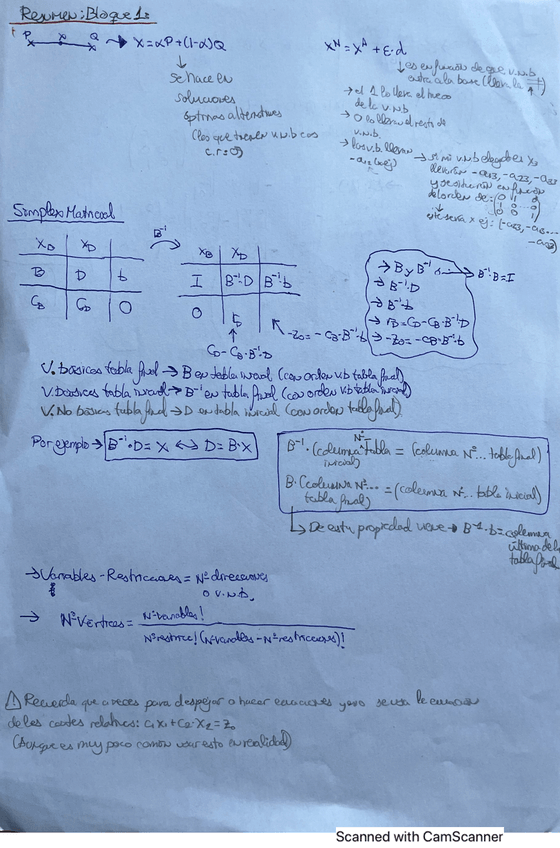 Resumen: Bloque 1:
P x Q → X=αP+(1-α)Q
↓
Se hace en
soluciones
óptimas alternativas
(los que tienen v.n.b cos
c.r=0)
X^N = X^A + ε·d
↓ es en función de que v.n.b
entra a la base
→ el 1 lo lleva el
de la v.n.b
→ 0 lo llevan el resto de
v.n.b.
→ las v.b. llevan
→ si mi v.n.b elegida es X3
llevarán -a13, -a23, -a33
y se
del orden de:
Simplex Matricial
X_B X_D
B D b
C_B C_D 0
B^-1
X_B X_D
I B^-1·D B^-1·b
0 r_D -Z0 = -C_B·B^-1·b
C_D - C_B·B^-1·D
→ B y B^-1 → B^-1·B=I
→ B^-1·D
→ B^-1·b
→ r_D = C_D - C_B·B^-1·D
→ -Z0 = -C_B·B^-1·b
V. básicas tabla final → B en tabla inicial (con orden v.b tabla final)
V. básicas tabla inicial → B^-1 en tabla final (con orden v.b tabla inicial)
V. No básicas tabla final → D en tabla inicial (con orden tabla final)
Por ejemplo → B^-1·D = X ↔ D = B·X
B^-1·(columna Nº... tabla inicial) = (columna Nº... tabla final)
B·(columna Nº... tabla final) = (columna Nº... tabla inicial)
↳ De esta propiedad viene → B^-1·b = columna
última de la
tabla final
→ Variables - Restricciones = Nº direcciones
o v.n.b.
→ Nº Vértices = Nº variables! / Nº restricc! (Nº variables - Nº restricciones)!
⚠ Recuerda que a veces para despejar o hacer ecuaciones se usa la ecuación
de los costes relativos: C1X1+C2·X2=Z0
(Aunque es muy poco común usar esto en realidad)
Scanned with CamScanner